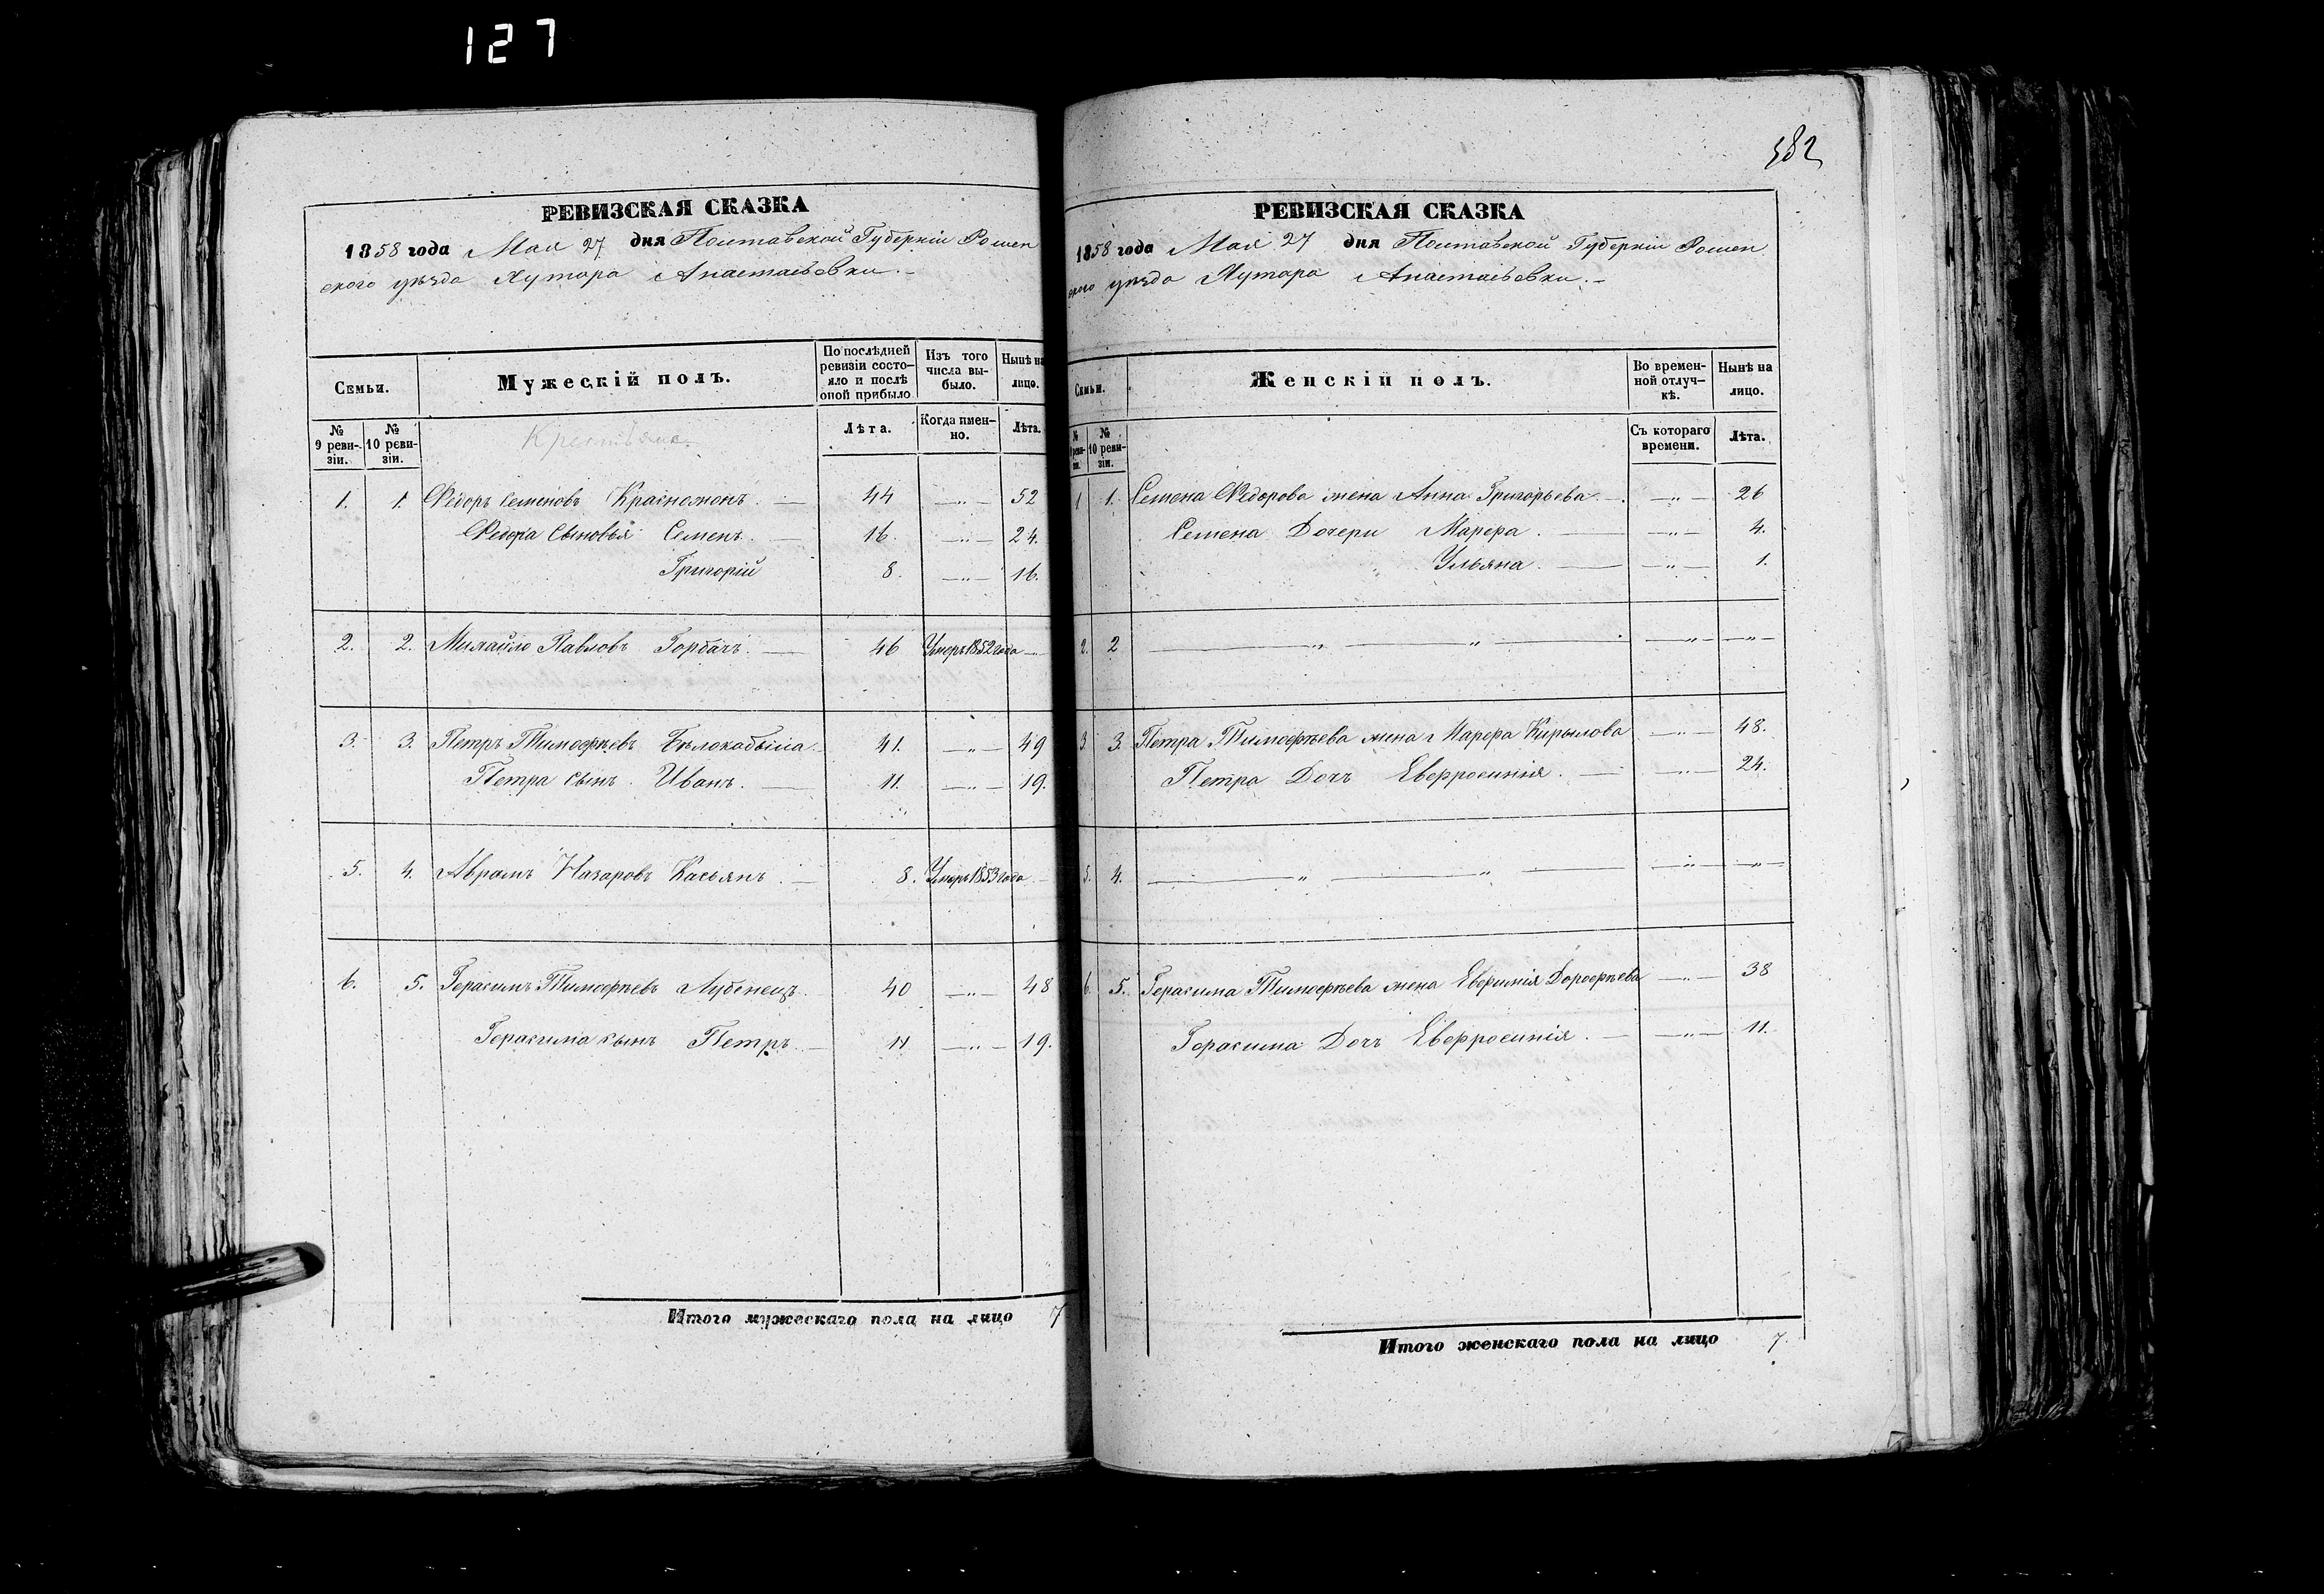 127
РЕВИЗСКАЯ СКАЗКА
1858 года Мая 27 дня Полтавской Губерніи Ромен
ского уѣзда Хутора Анастасьевки.
Семьи.
Мужескій полъ.
По послѣдней ревизіи состояло и послѣ оной прибыло
Изъ того числа выбыло.
Нынѣ на лицо.
№ 9 ревизіи.
№ 10 ревизіи.
Крестьяне.
Лѣта.
Когда именно.
Лѣта.
1. 1. Федоръ Семеновъ 44 —„— 52
Федора Сыновья Семенъ. 16. —„— 24.
Григорій 8. —„— 16.
2. 2. Михайло Павловъ Горбачъ. 46 Умеръ 1852 года —
3. 3. Петръ Тимофѣевъ 41. —„— 49
Петра сынъ. Иванъ. 11. —„— 19.
5. 4. Аврамъ Назаровъ Касьянъ. 8. Умеръ 1853 года —
6. 5. Герасимъ Тимофѣевъ Лубенецъ 40 —„— 48
Герасима сынъ Петръ 11 —„— 19.
Итого мужескаго пола на лицо 7
382
РЕВИЗСКАЯ СКАЗКА
1858 года Мая 27 дня Полтавской Губерніи Ромен
ского уѣзда Хутора Анастасьевки.
Семьи.
Женскій полъ.
Во временной отлучкѣ.
Нынѣ на лицо.
№ 9 ревизіи.
№ 10 ревизіи.
Съ котораго времени.
Лѣта.
1 1. Семена Федорова жена Анна Григорьева. —„— 26
Семена Дочери Марфа. —„— 4.
Ульяна. —„— 1.
2. 2 —„— „ — —„— —„—
3. 3. Петра Тимофѣева жена Марфа Кирылова —„— 48.
Петра Дочь Евфросинія. —„— 24.
5. 4. —„— „ — —„— —„—
6. 5. Герасима Тимофѣева жена Евфимія Дорофѣева —„— 38
Герасима Дочь Евфросинія. —„— 11.
Итого женскаго пола на лицо 7.